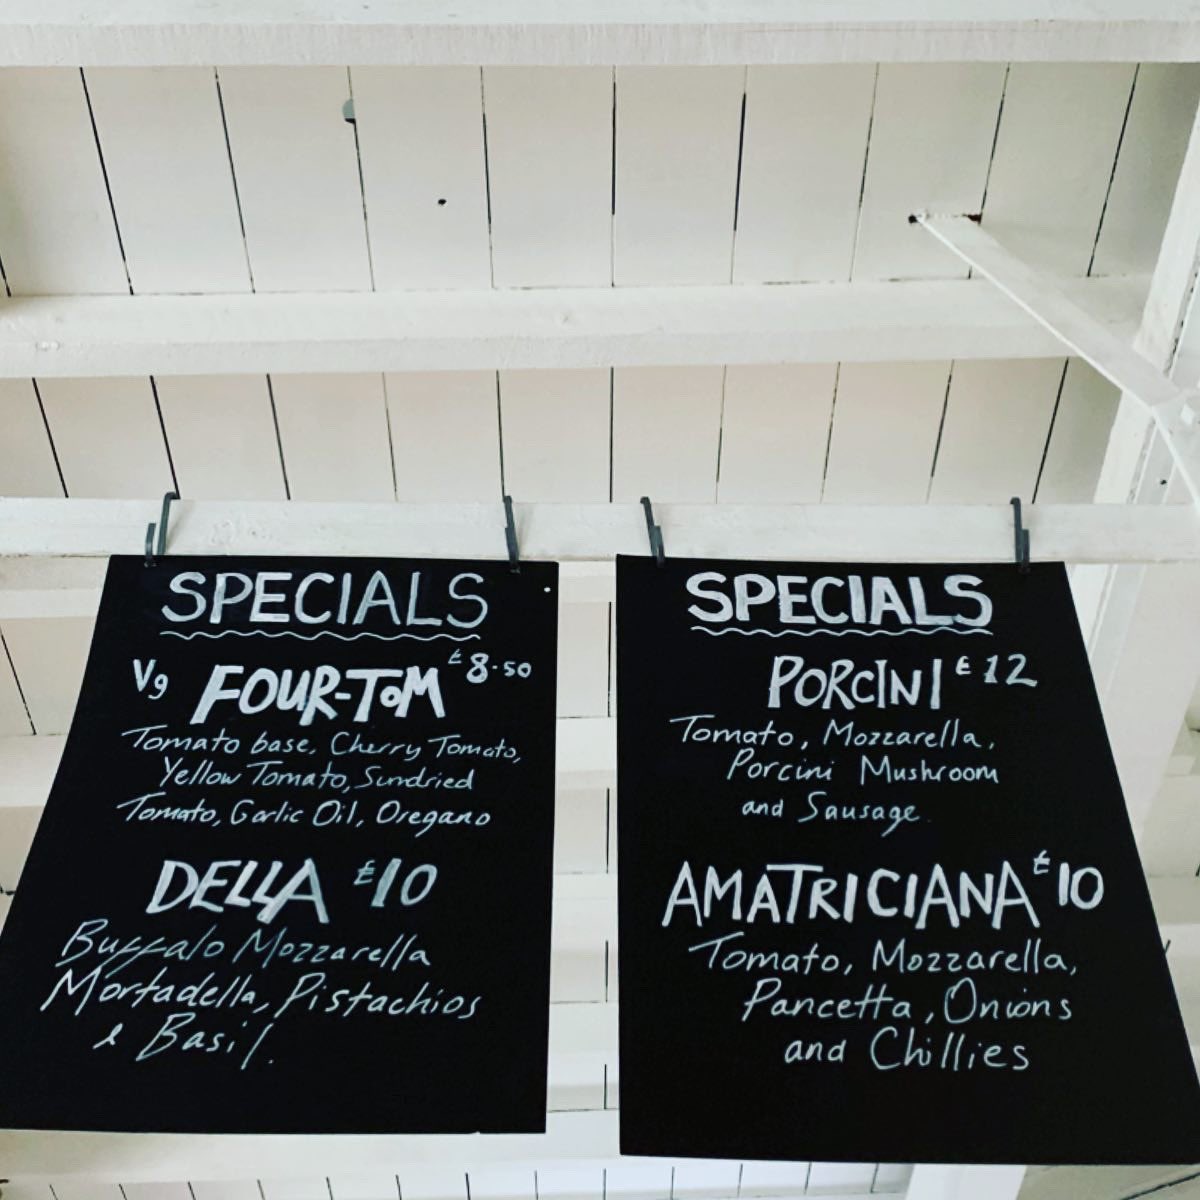 SPECIALS
Vg FOUR-TOM £8.50
Tomato base, Cherry Tomato,
Yellow Tomato, Sundried
Tomato, Garlic Oil, Oregano
DELLA £10
Buffalo Mozzarella
Mortadella, Pistachios
& Basil.
SPECIALS
PORCINI £12
Tomato, Mozzarella,
Porcini Mushroom
and Sausage.
AMATRICIANA £10
Tomato, Mozzarella,
Pancetta, Onions
and Chillies